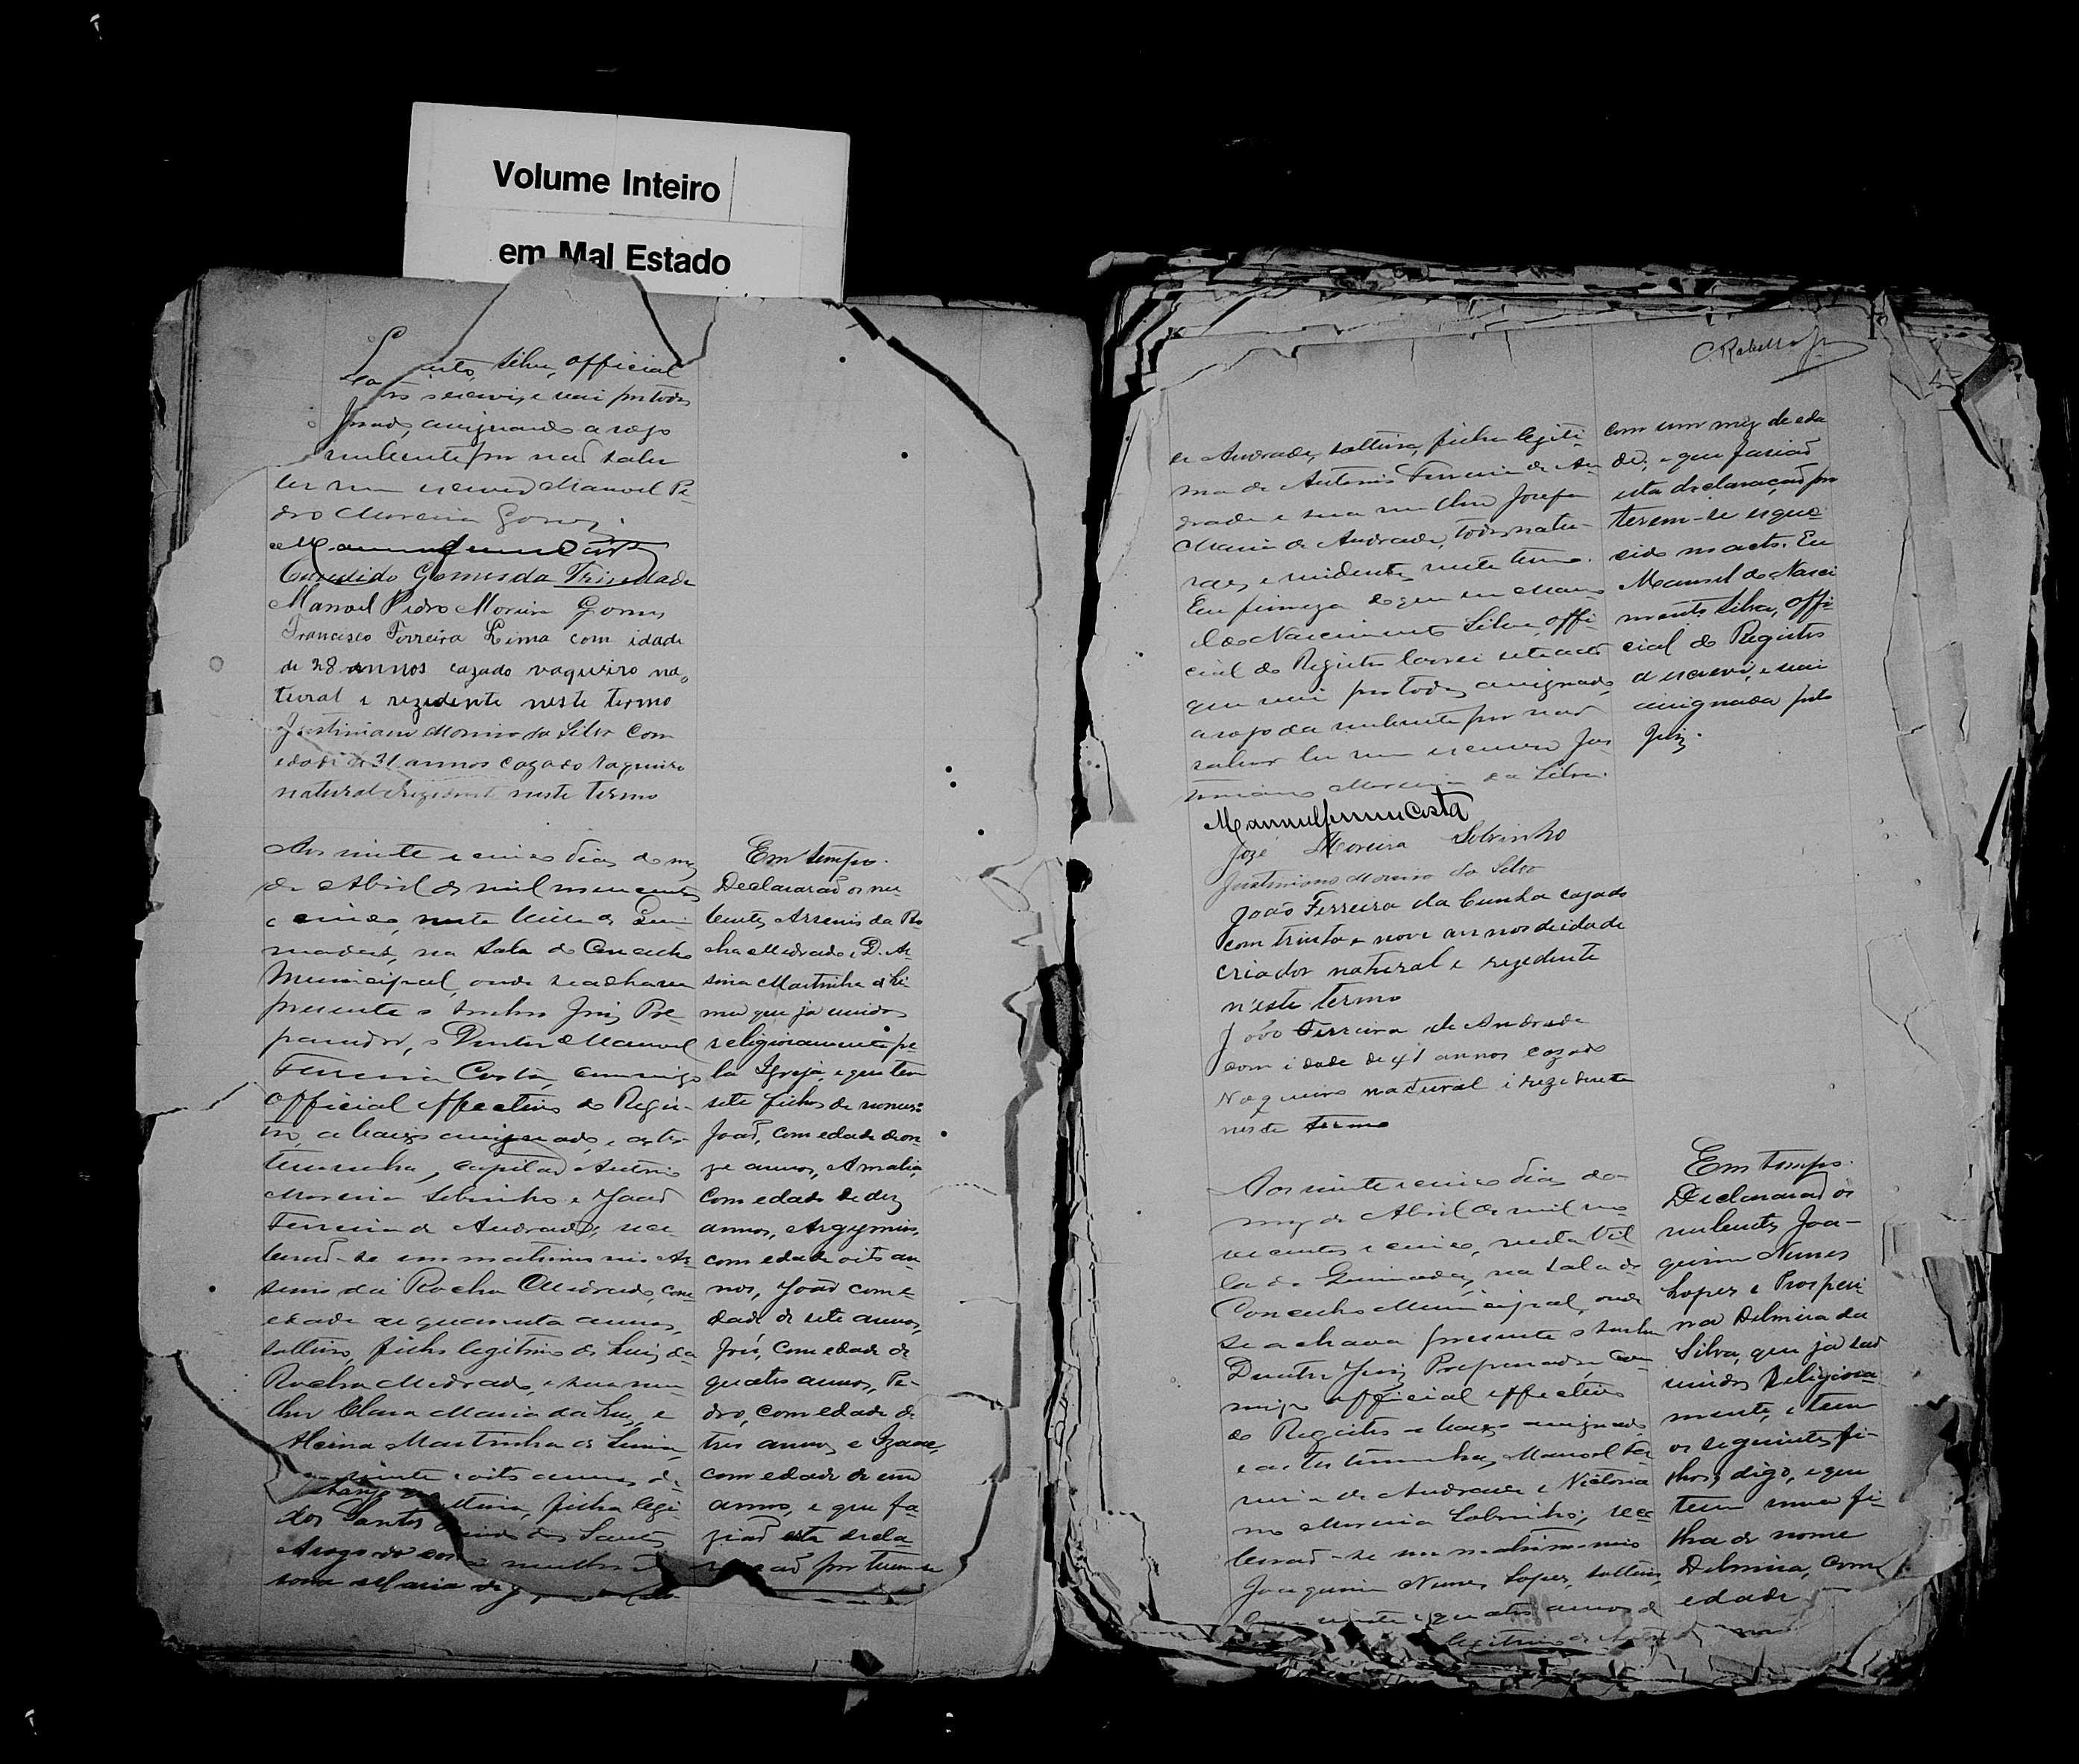 Volume Inteiro
em Mal Estado
Silva, official
escrevi, e vai por todos
assignando a rogo
nubente por não saber
ler nem escrever Manoel Pe-
dro Moreira Gomes.
Candido Gomes da Trindade
Manoel Pedro Moreira Gomes
Francisco Ferreira Lima com idade
de 28 annos cazado vaqueiro na
tural e rezidente neste termo
Justiniano Moreira da Silva com
edade de 31 annos cazado vaqueiro
natural e rezidente neste termo
Aos vinte e cinco dias do mez
de Abril de mil novecentos
e cinco, nesta Villa de Quei-
madas, na sala do Concelho
Municipal, onde se achava
presente o senhor Juiz Pre-
parador, o Doutor Manoel
Ferreira Costa, commigo
Official effectivo do Regis-
tro, abaixo assignado, e as tes-
temunhas, capitão Antonio
Moreira Sobrinho e João
Ferreira de Andrade, rece-
berão-se em matrimonio Ar-
senio da Rocha Medrado, com
edade de quarenta annos,
solteiro, filho legitimo de Luiz da
Rocha Medrado, e sua mu-
lher Clara Maria da Luz, e
Martinha de Lima,
vinte e oito annos de
solteira, filha legi-
dos Santos
Arogo do
Maria de
Em tempo.
Declararão os nu-
bentes Arsenio da Ro-
cha Medrado e D. Al-
sina Martinha de Li-
ma que ja unidos
religiosamente pe-
la Igreja, e que tem
sete filhos de nomes:
João, com edade de on-
ze annos, Amalia,
com edade de dez
annos, Argymiro,
com edade oito an-
nos, João com e-
dade de sete annos,
José, com edade de
quatro annos, Pe-
dro, com edade de
tres annos e Izaac,
com edade de um
anno, e que fa-
zião esta decla-
ração por terem-se
C. Rabello Jr
de Andrade, solteira, filha legiti-
ma de Antonio Ferreira de An-
drade e sua mulher Josefa
Maria de Andrade, todos natu-
raes, e residentes neste termo.
Em firmeza do que eu Mano-
el do Nascimento Silva, offi-
cial do Registro lavrei este acto
que vai por todos assignado,
a rogo da nubente por não
saber ler nem escrever Jus-
tiniano Moreira da Silva.
Manuel Ferreira Costa
José Moreira Sobrinho
Justiniano Moreira da Silva
João Ferreira da Cunha cazado
com trinta e nove annos de idade
criador natural e rezedente
n'este termo
João Ferreira de Andrade
com idade de 41 annos cazado
Vaqueiro natural e rezedente
neste termo
com um mez de eda-
de; e que fasião
esta declaração por
terem-se esque-
cido no acto. Eu
Manoel do Nasci-
mento Silva, Offi-
cial do Registro
a escrevi, e vai
assignada pelo
Juiz.
Aos vinte e cinco dias do
mez de Abril de mil no-
vecentos e cinco, nesta Vil-
la de Queimadas, na sala do
Concelho Municipal, onde
se achava presente o senhor
Doutor Juiz Preparador, com-
migo official effectivo
do Registro abaixo assignado
e as testemunhas, Manoel Fer-
reira de Andrade e Victoria-
no Moreira Sobrinho, rece-
berão-se em matrimonio
Joaquim Nunes Lopes, solteiro,
vinte e quatro annos de
legitimo de
Em tempo.
Declararão os
nubentes Joa-
quim Nunes
Lopes e Prosperi-
na Delmira da
Silva, que já são
unidos Religiosa-
mente, e tem
os seguintes fi-
lhos, digo, e que
tem uma fi-
lha de nome
Delmira, com
edade